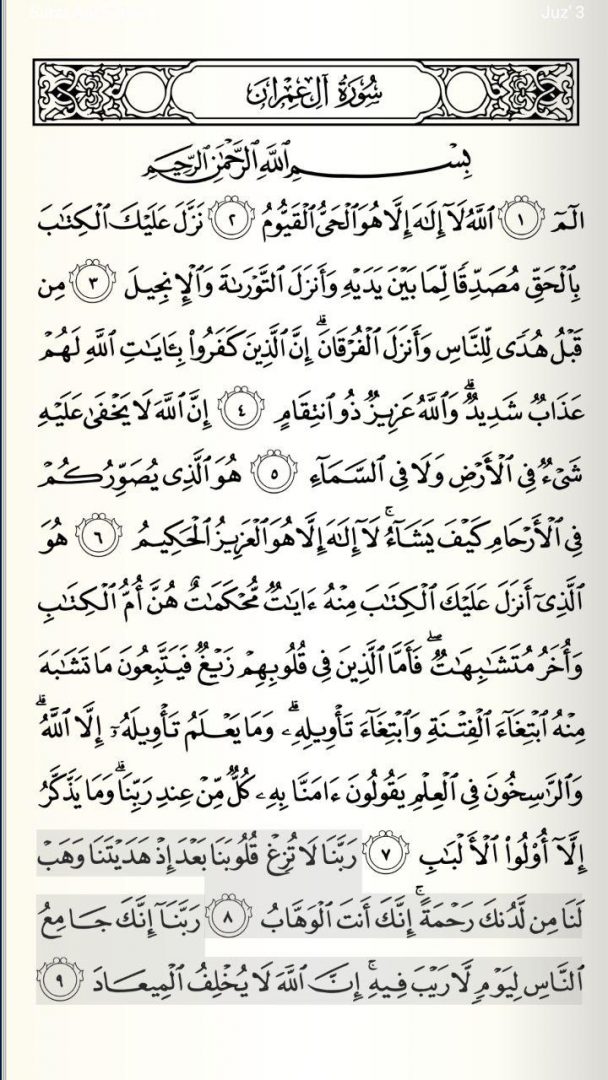 Juz' 3
سُورَةُ آلِ عِمْرَانَ
بِسْمِ اللَّهِ الرَّحْمَٰنِ الرَّحِيمِ
الٓمٓ ١ اللَّهُ لَآ إِلَٰهَ إِلَّا هُوَ الْحَىُّ الْقَيُّومُ ٢ نَزَّلَ عَلَيْكَ الْكِتَٰبَ
بِالْحَقِّ مُصَدِّقًا لِّمَا بَيْنَ يَدَيْهِ وَأَنزَلَ التَّوْرَىٰةَ وَالْإِنجِيلَ ٣ مِن
قَبْلُ هُدًى لِّلنَّاسِ وَأَنزَلَ الْفُرْقَانَ ۗ إِنَّ الَّذِينَ كَفَرُوا۟ بِـَٔايَٰتِ اللَّهِ لَهُمْ
عَذَابٌ شَدِيدٌ ۗ وَاللَّهُ عَزِيزٌ ذُو انتِقَامٍ ٤ إِنَّ اللَّهَ لَا يَخْفَىٰ عَلَيْهِ
شَىْءٌ فِى الْأَرْضِ وَلَا فِى السَّمَآءِ ٥ هُوَ الَّذِى يُصَوِّرُكُمْ
فِى الْأَرْحَامِ كَيْفَ يَشَآءُ ۚ لَآ إِلَٰهَ إِلَّا هُوَ الْعَزِيزُ الْحَكِيمُ ٦ هُوَ
الَّذِىٓ أَنزَلَ عَلَيْكَ الْكِتَٰبَ مِنْهُ ءَايَٰتٌ مُّحْكَمَٰتٌ هُنَّ أُمُّ الْكِتَٰبِ
وَأُخَرُ مُتَشَٰبِهَٰتٌ ۖ فَأَمَّا الَّذِينَ فِى قُلُوبِهِمْ زَيْغٌ فَيَتَّبِعُونَ مَا تَشَٰبَهَ
مِنْهُ ابْتِغَآءَ الْفِتْنَةِ وَابْتِغَآءَ تَأْوِيلِهِۦ ۗ وَمَا يَعْلَمُ تَأْوِيلَهُۥٓ إِلَّا اللَّهُ ۗ
وَالرَّٰسِخُونَ فِى الْعِلْمِ يَقُولُونَ ءَامَنَّا بِهِۦ كُلٌّ مِّنْ عِندِ رَبِّنَا ۗ وَمَا يَذَّكَّرُ
إِلَّآ أُو۟لُوا۟ الْأَلْبَٰبِ ٧ رَبَّنَا لَا تُزِغْ قُلُوبَنَا بَعْدَ إِذْ هَدَيْتَنَا وَهَبْ
لَنَا مِن لَّدُنكَ رَحْمَةً ۚ إِنَّكَ أَنتَ الْوَهَّابُ ٨ رَبَّنَآ إِنَّكَ جَامِعُ
النَّاسِ لِيَوْمٍ لَّا رَيْبَ فِيهِ ۚ إِنَّ اللَّهَ لَا يُخْلِفُ الْمِيعَادَ ٩